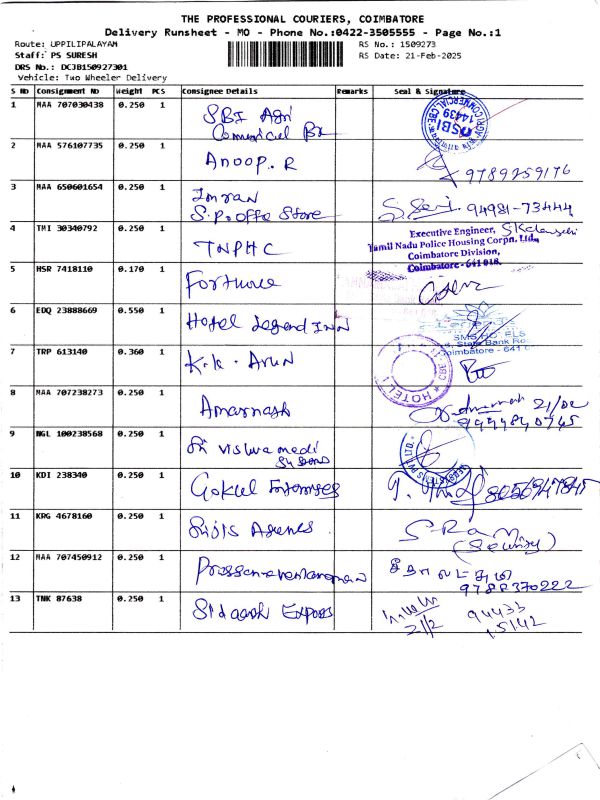 THE PROFESSIONAL COURIERS, COIMBATORE
Delivery Runsheet - MO - Phone No.:0422-3505555 - Page No.:1
Route: UPPILIPALAYAM RS No.: 1509273
Staff: PS SURESH RS Date: 21-Feb-2025
DRS No.: DCJB150927301
Vehicle: Two Wheeler Delivery
S No Consignment No Weight PCS Consignee Details Remarks Seal & Signature
1 MAA 707030438 0.250 1 SBI Agri
SBI 14439
2 MAA 576107735 0.250 1 Anoop. R 9789259176
3 MAA 650601654 0.250 1 Imran
Store 94981-73444
4 TMI 30340792 0.250 1 TNPHC
Executive Engineer,
Tamil Nadu Police Housing Corpn. Ltd.,
Coimbatore Division,
Coimbatore - 641 018.
5 HSR 7418110 0.170 1 Fortune
6 EDQ 23888669 0.550 1 Hotel Legend INN
State Bank Ro
7 TRP 613140 0.360 1 K.K. Arun
HOTEL
8 MAA 707238273 0.250 1 Amarnath 21/02
9 NGL 100238568 0.250 1
10 KDI 238340 0.250 1 Gokul
11 KRG 4678160 0.250 1 S-Ram
(Security)
12 MAA 707450912 0.250 1
9788370222
13 TNK 87638 0.250 1 Express 94433
21/2 15142